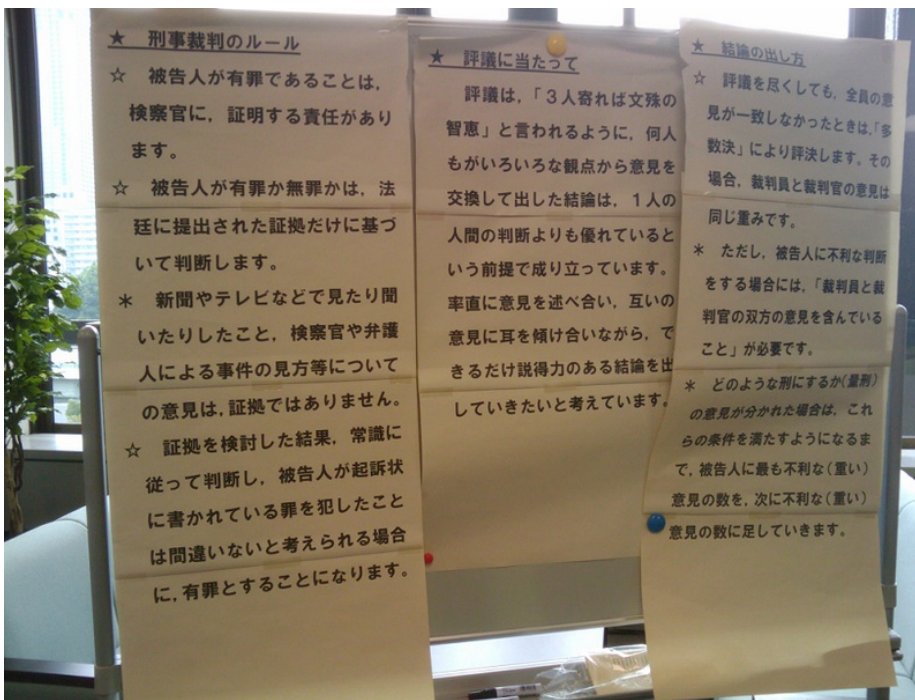 ★ 刑事裁判のルール
☆ 被告人が有罪であることは,
検察官に, 証明する責任があり
ます。
☆ 被告人が有罪か無罪かは, 法
廷に提出された証拠だけに基づ
いて判断します。
＊ 新聞やテレビなどで見たり聞
いたりしたこと, 検察官や弁護
人による事件の見方等について
の意見は, 証拠ではありません。
☆ 証拠を検討した結果, 常識に
従って判断し, 被告人が起訴状
に書かれている罪を犯したこと
は間違いないと考えられる場合
に, 有罪とすることになります。
★ 評議に当たって
評議は, 「３人寄れば文殊の
智恵」と言われるように, 何人
もがいろいろな観点から意見を
交換して出した結論は, １人の
人間の判断よりも優れていると
いう前提で成り立っています。
率直に意見を述べ合い, 互いの
意見に耳を傾け合いながら, で
きるだけ説得力のある結論を出
していきたいと考えています。
★ 結論の出し方
☆ 評議を尽くしても, 全員の意
見が一致しなかったときは, 「多
数決」により評決します。その
場合, 裁判員と裁判官の意見は
同じ重みです。
＊ ただし, 被告人に不利な判断
をする場合には, 「裁判員と裁
判官の双方の意見を含んでいる
こと」が必要です。
＊ どのような刑にするか(量刑)
の意見が分かれた場合は, これ
らの条件を満たすようになるま
で, 被告人に最も不利な(重い)
意見の数を, 次に不利な(重い)
意見の数に足していきます。